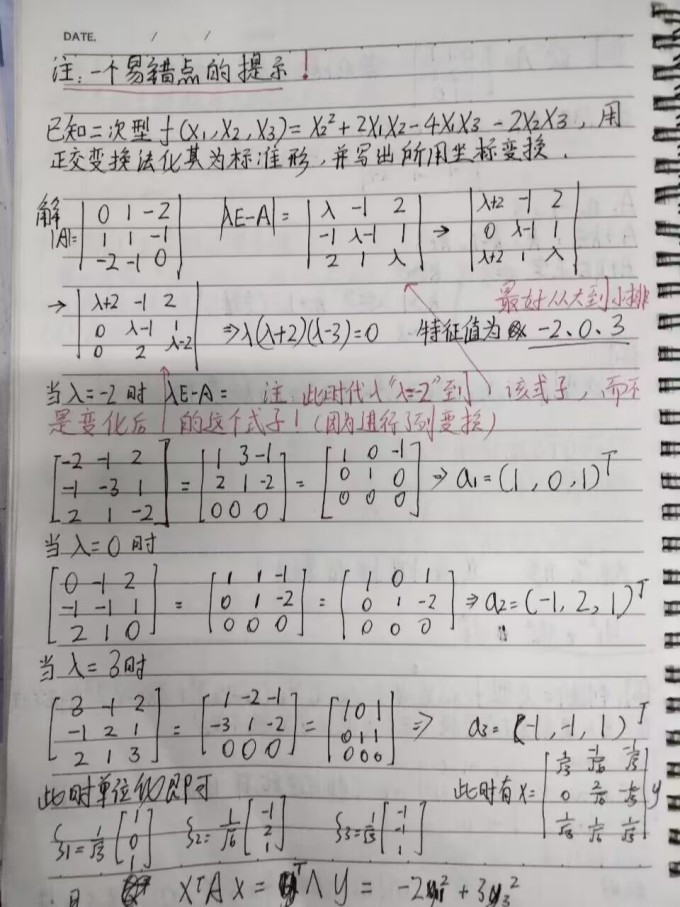 DATE. / /
注:一个易错点的提示!
已知二次型f(X₁,X₂,X₃)=X₂²+2X₁X₂-4X₁X₃-2X₂X₃,用
正交变换法化其为标准形,并写出所用坐标变换.
解 |A|= |0 1 -2; 1 1 -1; -2 -1 0| |λE-A|= |λ -1 2; -1 λ-1 1; 2 1 λ| → |λ+2 -1 2; 0 λ-1 1; λ+2 1 λ|
最好从大到小排
→ |λ+2 -1 2; 0 λ-1 1; 0 2 λ-2| ⇒λ(λ+2)(λ-3)=0 特征值为 -2.0.3
当λ=-2时 λE-A= 注 此时代入"λ=-2"到 该式子,而不
是变化后 的这个式子!(因为进行了列变换)
[-2 -1 2; -1 -3 1; 2 1 -2] = [1 3 -1; 2 1 -2; 0 0 0] = [1 0 -1; 0 1 0; 0 0 0] ⇒ a₁=(1,0,1)ᵀ
当λ=0时
[0 -1 2; -1 -1 1; 2 1 0] = [1 1 -1; 0 1 -2; 0 0 0] = [1 0 1; 0 1 -2; 0 0 0] ⇒ a₂=(-1,2,1)ᵀ
当λ=3时
[3 -1 2; -1 2 1; 2 1 3] = [1 -2 -1; -3 1 -2; 0 0 0] = [1 0 1; 0 1 1; 0 0 0] ⇒ a₃=(-1,-1,1)ᵀ
此时单位化即可 此时有x= y
ξ₂=1/√6 [-1; 2; 1] ξ₃=1/√3 [-1; -1; 1]
且 XᵀAX = ΛY = -2y₁²+3y₃²